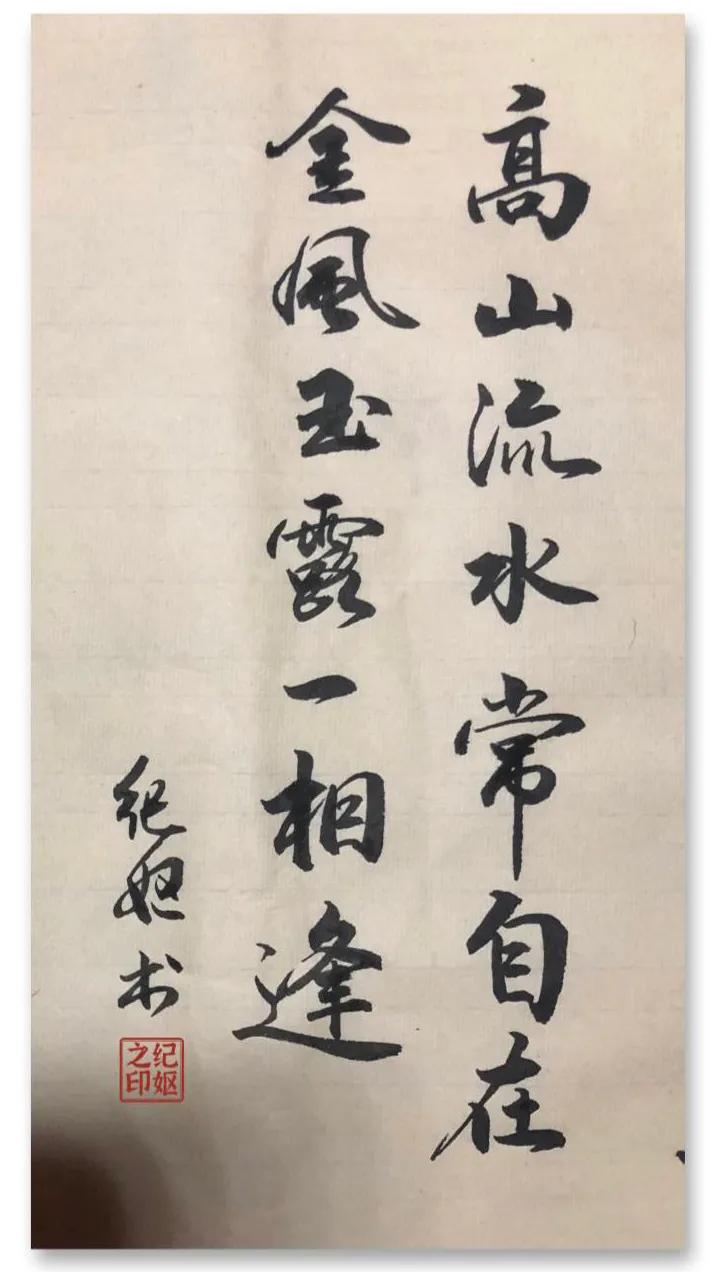 高山流水常自在
金風玉露一相逢
纪妪术
纪妪之印